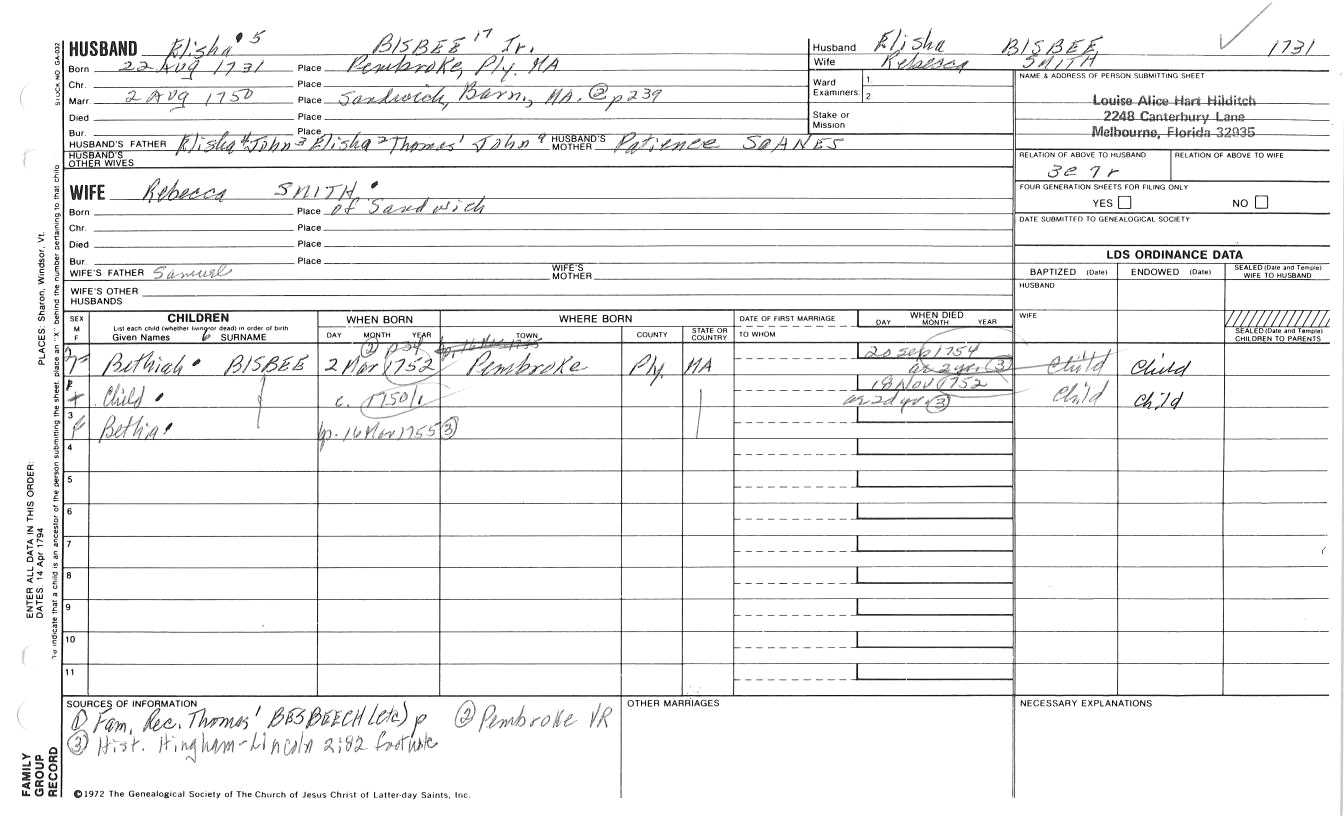 HUSBAND Elisha 5 BISBEE 17 Jr.
Born 22 Aug 1731 Place Pembroke, Ply. MA
Chr. Place
Marr 2 Aug 1750 Place Sandwich, Barn., MA. ② p239
Died Place
Bur. Place
HUSBAND'S FATHER Elisha 4 John 3 Elisha 2 Thomas 1 John 9 HUSBAND'S MOTHER Patience SOANES
HUSBAND'S OTHER WIVES
WIFE Rebecca SMITH
Born Place of Sandwich
Chr. Place
Died Place
Bur Place
WIFE'S FATHER Samuel WIFE'S MOTHER
WIFE'S OTHER HUSBANDS
Husband Elisha BISBEE 1731
Wife Rebecca SMITH
Ward Examiners 1 2
Stake or Mission
NAME & ADDRESS OF PERSON SUBMITTING SHEET
Louise Alice Hart Hilditch
2248 Canterbury Lane
Melbourne, Florida 32935
RELATION OF ABOVE TO HUSBAND RELATION OF ABOVE TO WIFE
3c 7r
FOUR GENERATION SHEETS FOR FILING ONLY
YES NO
DATE SUBMITTED TO GENEALOGICAL SOCIETY
LDS ORDINANCE DATA
BAPTIZED (Date) ENDOWED (Date) SEALED (Date and Temple) WIFE TO HUSBAND
HUSBAND
WIFE
SEALED (Date and Temple) CHILDREN TO PARENTS
SEX M F
CHILDREN
List each child (whether living or dead) in order of birth
Given Names 6 SURNAME
WHEN BORN
DAY MONTH YEAR
WHERE BORN
TOWN COUNTY STATE OR COUNTRY
DATE OF FIRST MARRIAGE
TO WHOM
WHEN DIED
DAY MONTH YEAR
② p34 bp. 16 Mar 1755 20 Sep 1754
F Bethiah BISBEE 2 Mar 1752 Pembroke Ply. MA ae 2 yr. ③ Child Child
18 Nov 1752
Child c. 1750/1 ae 2d yr. ③ Child Child
3 f Bethia bp. 16 Mar 1755 ③
4
5
6
7
8
9
10
11
SOURCES OF INFORMATION
① Fam. Rec. Thomas 1 BESBEECH (etc) p ② Pembroke VR
③ Hist. Hingham-Lincoln 2:82 footnote
OTHER MARRIAGES
NECESSARY EXPLANATIONS
©1972 The Genealogical Society of The Church of Jesus Christ of Latter-day Saints, Inc.
STOCK NO GA-032
PLACES: Sharon, Windsor, Vt.
To indicate that a child is an ancestor of the person submitting the sheet, place an "X" behind the number pertaining to that child
ENTER ALL DATA IN THIS ORDER:
DATES: 14 Apr 1794
FAMILY GROUP RECORD